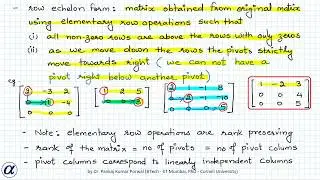 - row echelon form: matrix obtained from original matrix
using elementary row operations such that
(i) all non-zero rows are above the rows with only zeros
(ii) as we move down the rows the pivots strictly
move towards right (we can not have a
pivot right below another pivot)
eg.
1 -2 3
0 0 4
0 0 5
- Note: elementary row operations are rank preserving
- rank of the matrix = no of pivots = no of pivot columns
- pivot columns correspond to linearly independent columns
by Dr. Pankaj Kumar Porwal (BTech - IIT Mumbai, PhD - Cornell University)